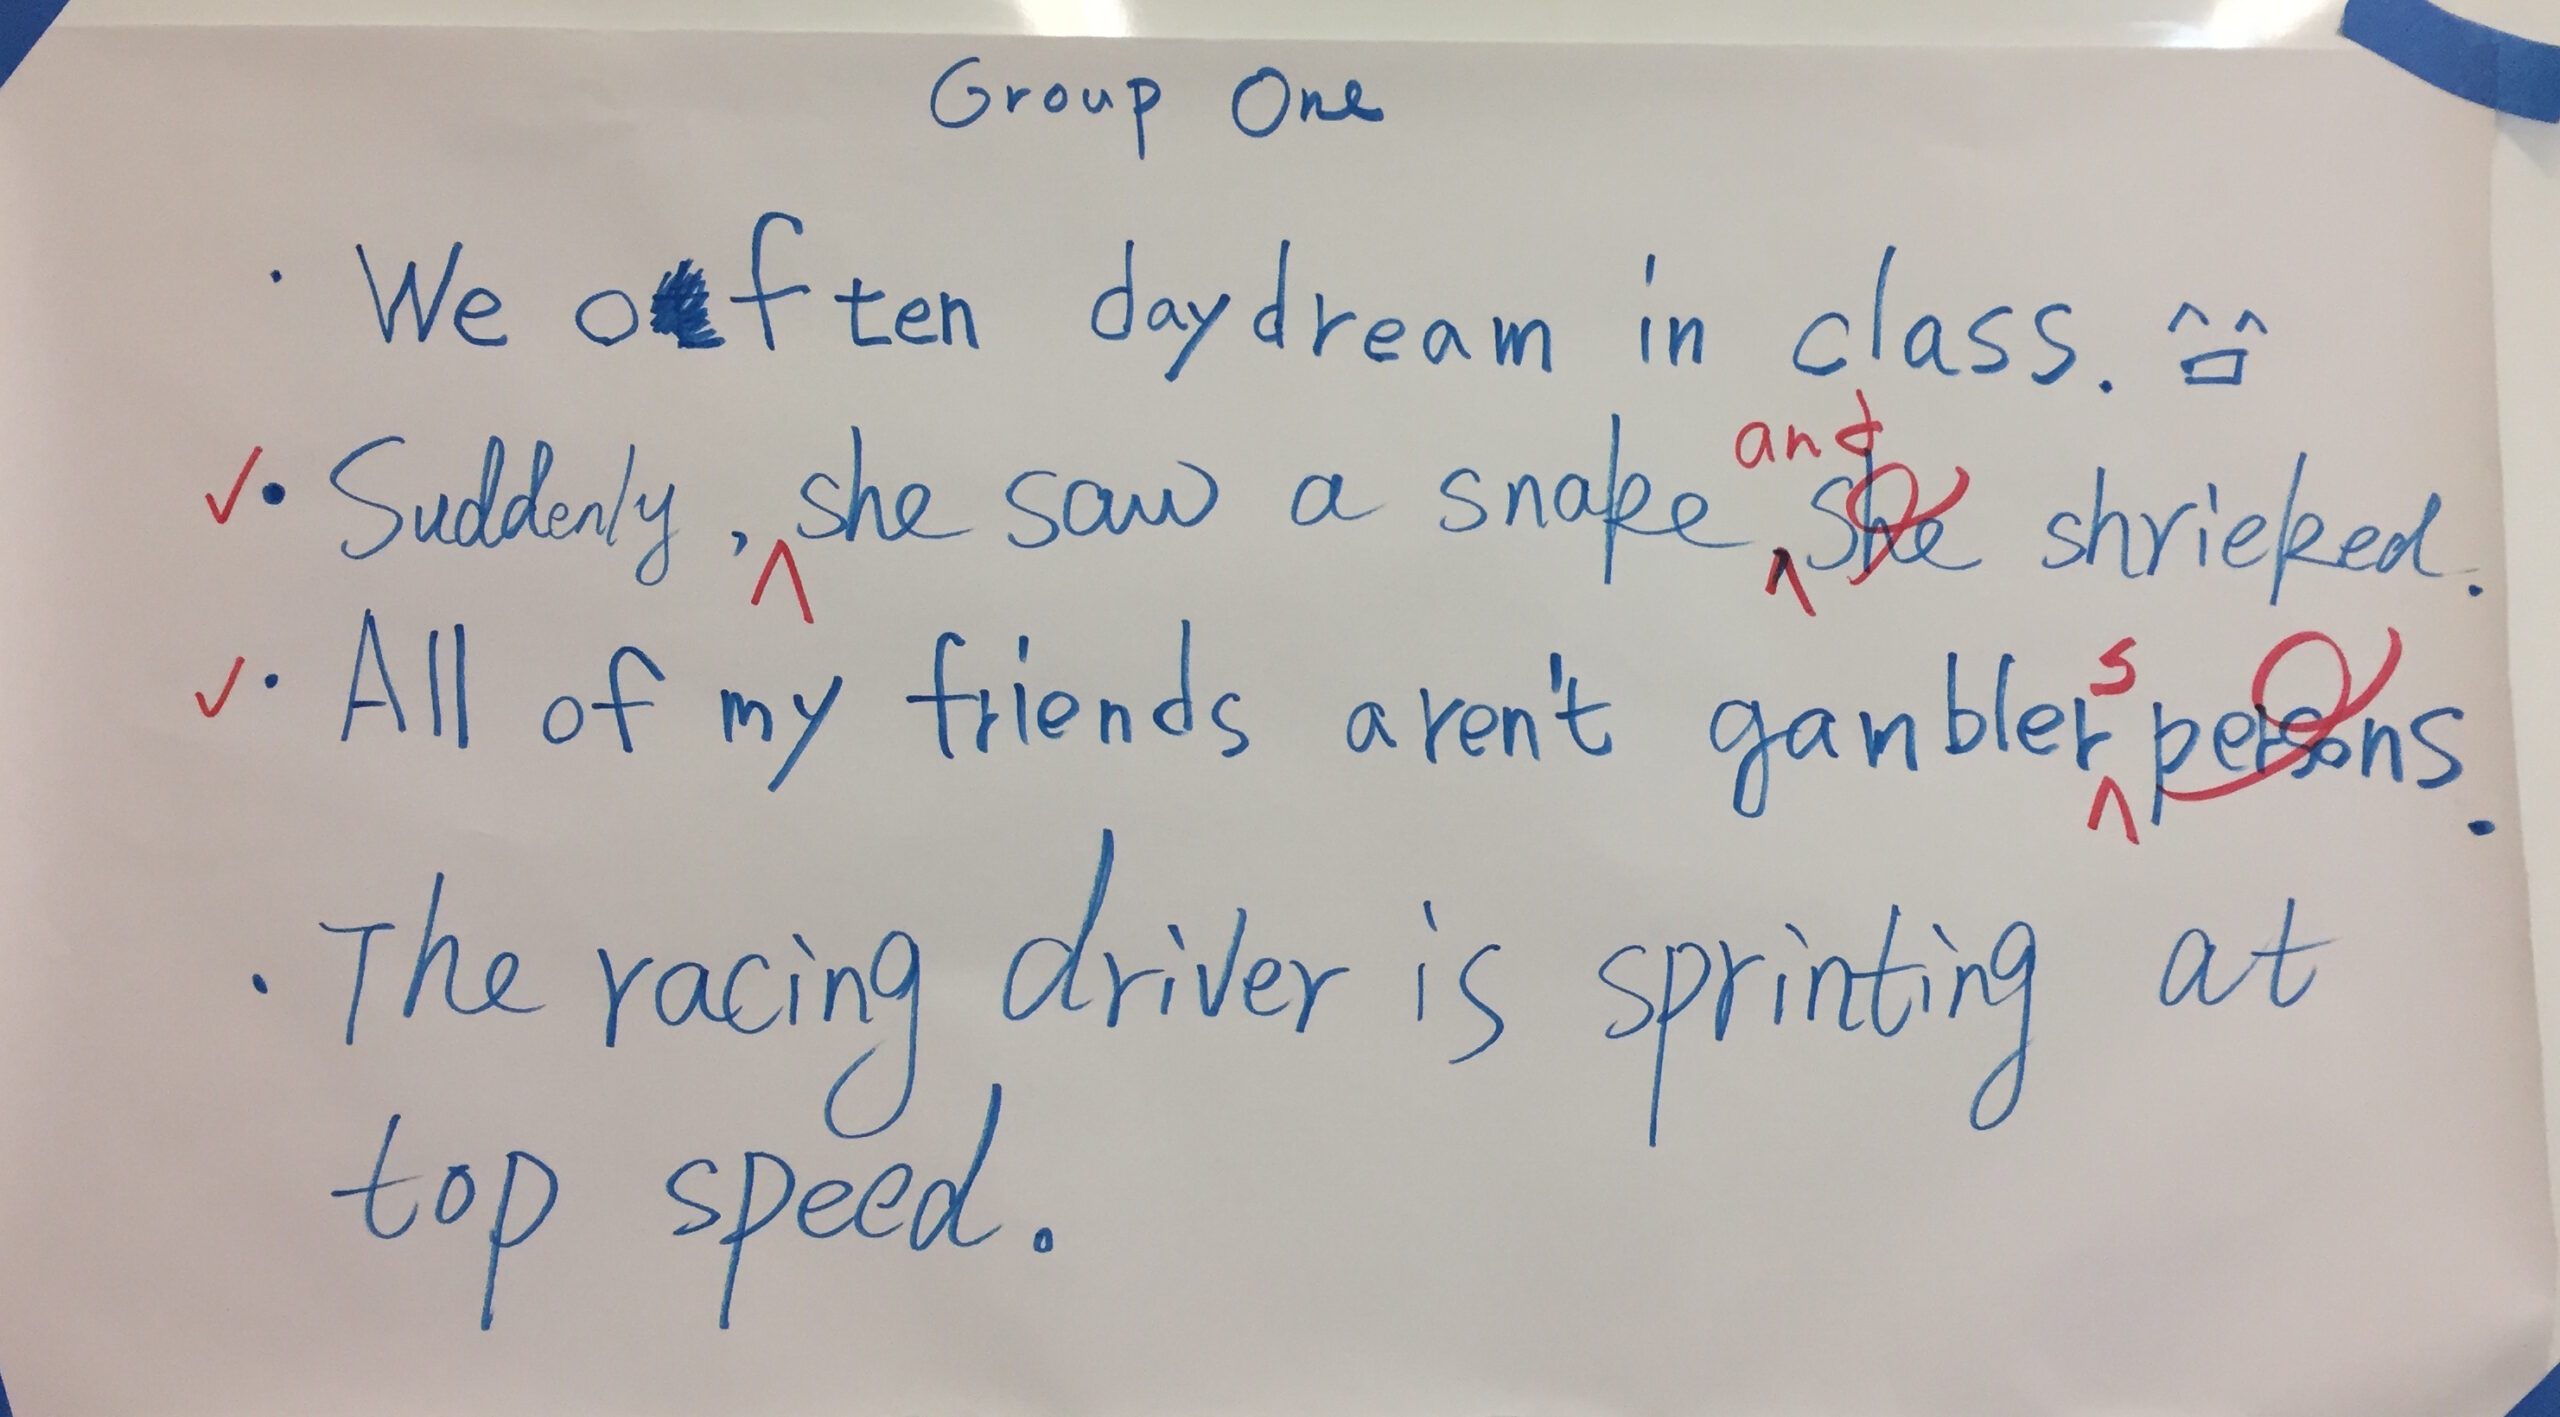 Group One
· We often daydream in class.
and
✓• Suddenly, she saw a snake she shrieked.
s
✓· All of my friends aren't gambler persons.
· The racing driver is sprinting at
top speed.